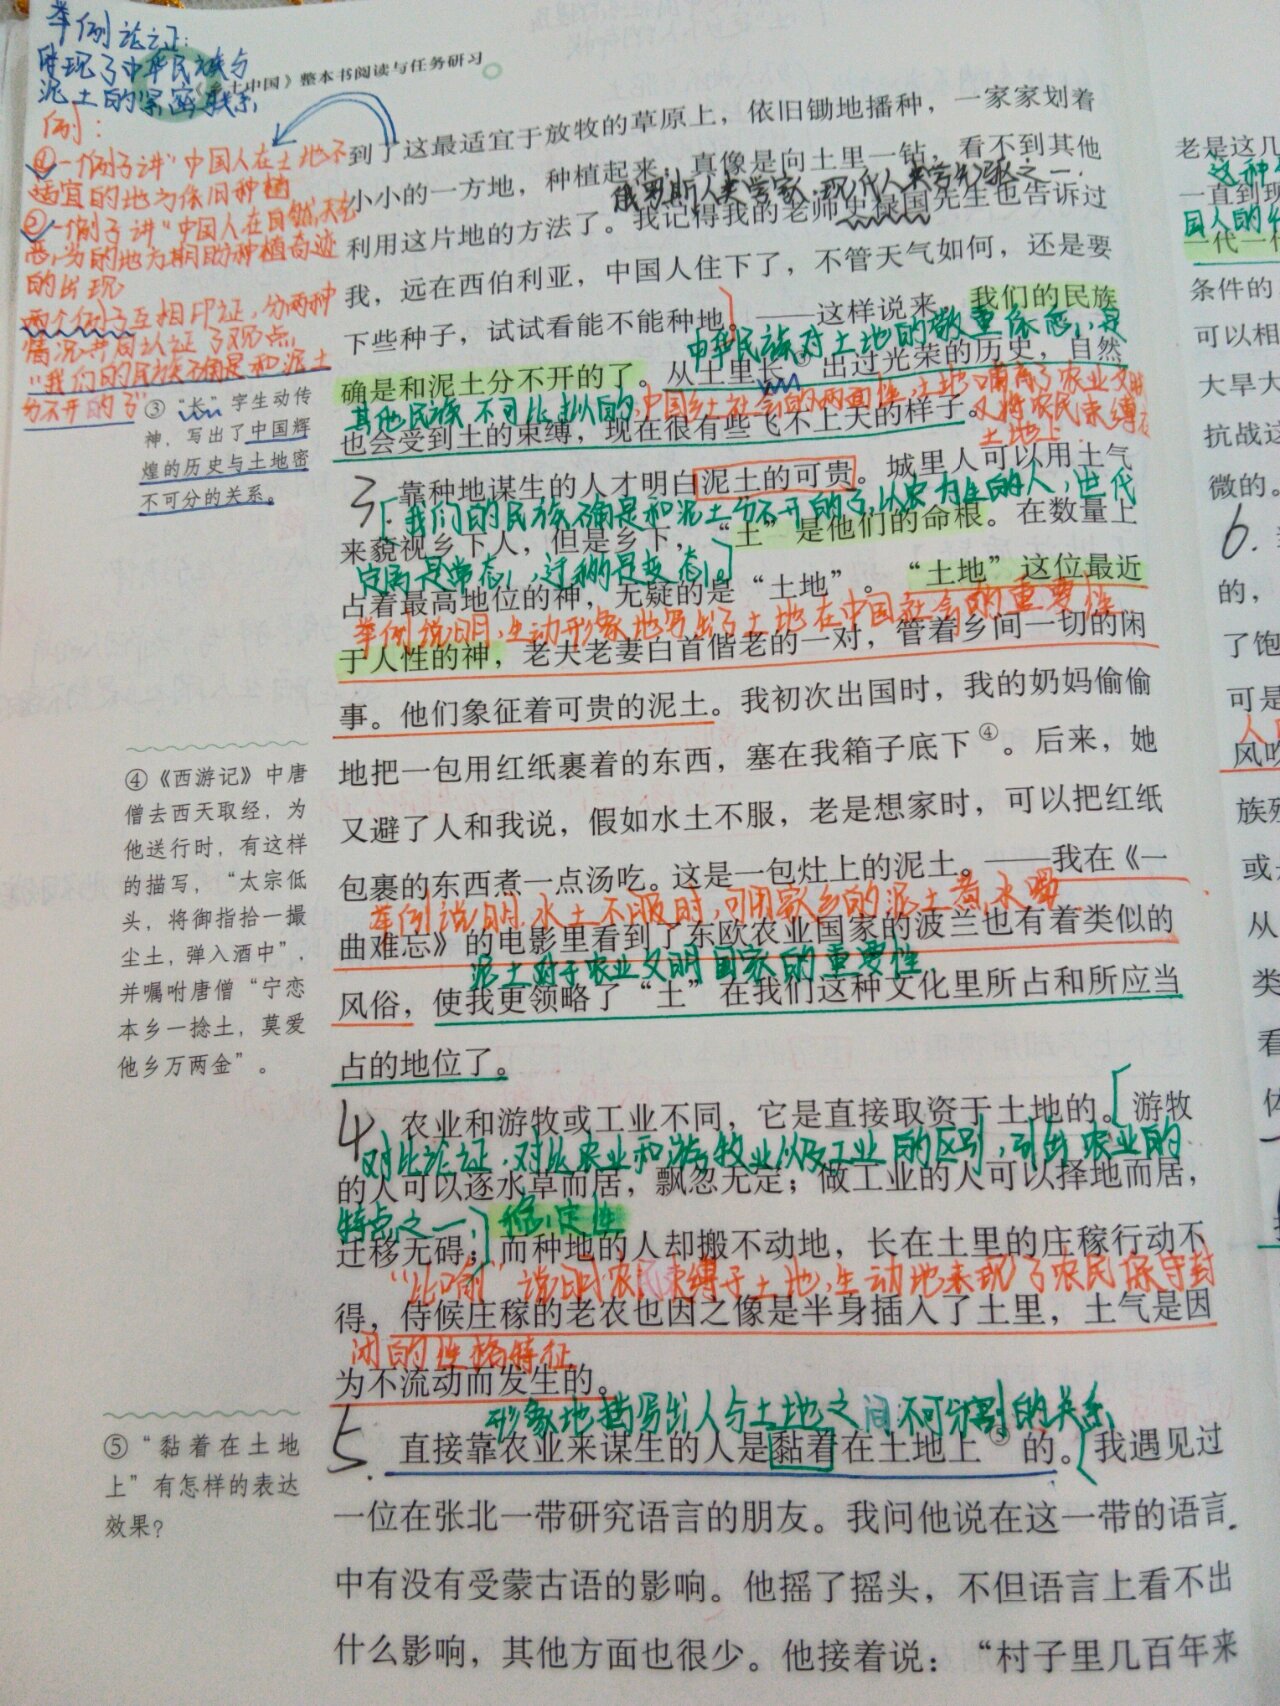 举例论证：
体现了中华民族与
泥土的紧密联系
《乡土中国》整本书阅读与任务研习
例：
①一个例子讲“中国人在土地不
适宜的地方依旧种植
②一个例子讲“中国人在自然天气
的出现
两个例子互相印证，分两种
情况共同认证了观点
“我们的民族确是和泥土
分不开的了”
③“长”字生动传
神，写出了中国辉
煌的历史与土地密
不可分的关系。
到了这最适宜于放牧的草原上，依旧锄地播种，一家家划着
小小的一方地，种植起来；真像是向土里一钻，看不到其他
俄罗斯人类学家，现代人类学先驱之一。
利用这片地的方法了。我记得我的老师史禄国先生也告诉过
我，远在西伯利亚，中国人住下了，不管天气如何，还是要
下些种子，试试看能不能种地。——这样说来，我们的民族
中华民族对土地的敬重依恋，是
确是和泥土分不开的了。从土里长③出过光荣的历史，自然
其他民族不可比拟的，中国乡土社会的两面性，土地哺育了农业文明
又将农民束缚在
土地上
也会受到土的束缚，现在很有些飞不上天的样子。
3.
靠种地谋生的人才明白泥土的可贵。城里人可以用土气
［我们的民族确是和泥土分不开的了，以农为生的人，世代
来藐视乡下人，但是乡下，“土”是他们的命根。在数量上
定居是常态，迁移是变态。］
占着最高地位的神，无疑的是“土地”。“土地”这位最近
举例说明，生动形象地写出了土地在中国社会的重要性
于人性的神，老夫老妻白首偕老的一对，管着乡间一切的闲
事。他们象征着可贵的泥土。我初次出国时，我的奶妈偷偷
地把一包用红纸裹着的东西，塞在我箱子底下④。后来，她
又避了人和我说，假如水土不服，老是想家时，可以把红纸
包裹的东西煮一点汤吃。这是一包灶上的泥土。——我在《一
举例说明，水土不服时，可用家乡的泥土煮水喝
曲难忘》的电影里看到了东欧农业国家的波兰也有着类似的
泥土对于农业文明国家的重要性
风俗，使我更领略了“土”在我们这种文化里所占和所应当
占的地位了。
④《西游记》中唐
僧去西天取经，为
他送行时，有这样
的描写，“太宗低
头，将御指拾一撮
尘土，弹入酒中”，
并嘱咐唐僧“宁恋
本乡一捻土，莫爱
他乡万两金”。
4
农业和游牧或工业不同，它是直接取资于土地的。［游牧
对比论证，对比农业和游牧业以及工业的区别，引出农业的
的人可以逐水草而居，飘忽无定；做工业的人可以择地而居，
特点之一，稳定性
迁移无碍；］而种地的人却搬不动地，长在土里的庄稼行动不
“比喻”说明农民束缚于土地，生动地表现了农民保守封
得，侍候庄稼的老农也因之像是半身插入了土里，土气是因
闭的性格特征
为不流动而发生的。
形象地描写出人与土地之间不可分割的关系
5.
直接靠农业来谋生的人是黏着在土地上⑤的。［我遇见过
一位在张北一带研究语言的朋友。我问他说在这一带的语言
中有没有受蒙古语的影响。他摇了摇头，不但语言上看不出
什么影响，其他方面也很少。他接着说：“村子里几百年来
⑤“黏着在土地
上”有怎样的表达
效果？
老是这几
一直到现
国人的
一代一代
条件的
可以相
大旱大
抗战这
微的。
6.
的，
了饱
可是
风吹
族
或
从
类
看
体